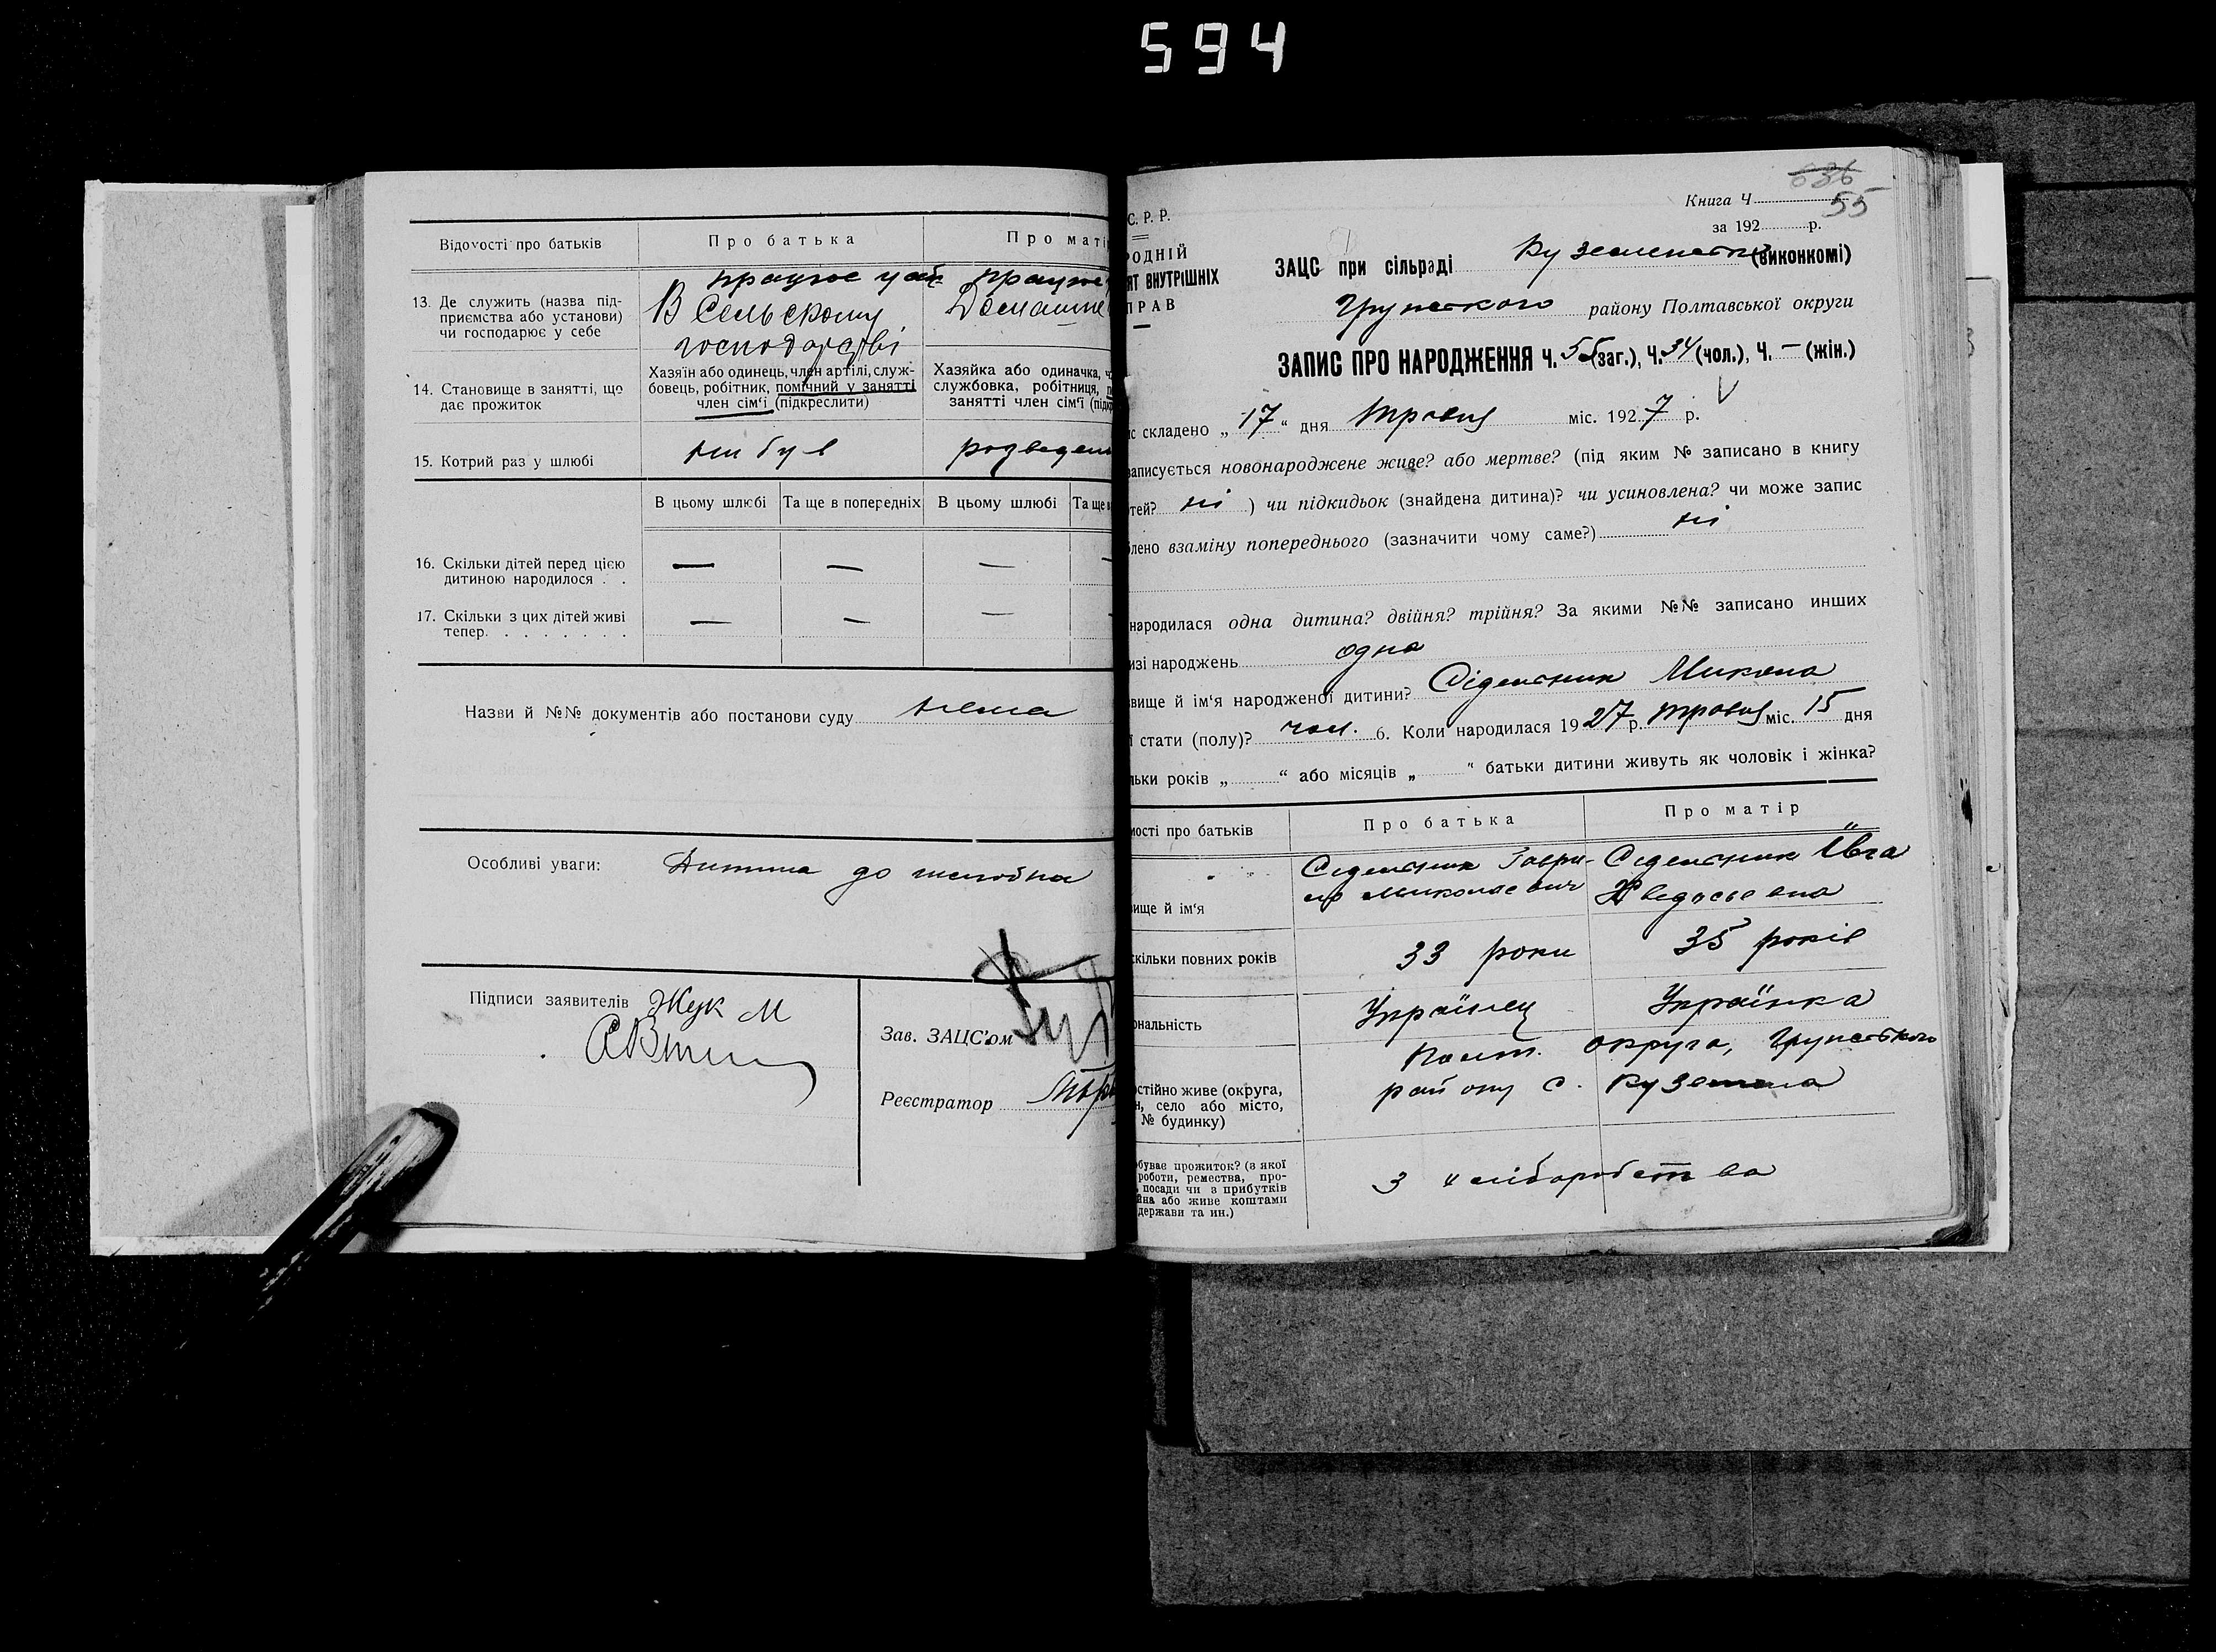 594
Відомості про батьків
Про батька
Про маті
13. Де служить (назва під-
приємства або установи)
чи господарює у себе
працює у
В Сельскому
господарстві
працює
Домашне
14. Становище в занятті, що
дає прожиток
Хазяїн або одинець, член артілі, служ-
бовець, робітник, помічний у занятті
член сім'ї (підкреслити)
Хазяйка або одиначка, ч
службовка, робітниця, п
занятті член сім'ї (підк
15. Котрий раз у шлюбі
ни був
розведен
В цьому шлюбі
Та ще в попередніх
В цьому шлюбі
Та ще в
16. Скільки дітей перед цією
дитиною народилося . .
— — — —
17. Скільки з цих дітей живі
тепер. . . . . . . .
— — — —
Назви й №№ документів або постанови суду нема
Особливі уваги: Дитина до
Підписи заявителів Жук М
Зав. ЗАЦС'ом
Реєстратор
636
Книга Ч. 55
за 192 р.
С. Р. Р.
РОДНІЙ
ЯТ ВНУТРІШНІХ
ПРАВ
ЗАЦС при сільраді (виконкомі)
Грунського району Полтавської округи
ЗАПИС ПРО НАРОДЖЕННЯ Ч. 55 (заг.), Ч. 34 (чол.), Ч. — (жін.)
ис складено „17“ дня травня міс. 1927 р.
записується новонароджене живе? або мертве? (під яким № записано в книгу
тей? ні ) чи підкидьок (знайдена дитина)? чи усиновлена? чи може запис
блено взаміну попереднього (зазначити чому саме?) ні
народилася одна дитина? двійня? трійня? За якими №№ записано инших
изі народжень одна
звище й ім'я народженої дитини? Сідельник Микола
ї стати (полу)? чол. 6. Коли народилася 1927 р. травня міс. 15 дня
льки років „ “ або місяців „ “ батьки дитини живуть як чоловік і жінка?
мості про батьків
Про батька
Про матір
вище й ім'я
Сідельник Гаври-
ло Миколаєвич
Сідельник Ївга
Хведосьевна
скільки повних років
33 роки
35 років
ональність
Українец
Українка
остійно живе (округа,
н, село або місто,
№ будинку)
Полт. округа, Грунського
району с. Куземена
обуває прожиток? (з якої
роботи, ремества, про-
, посади чи з прибутків
йна або живе коштами
держави та ин.)
З хліборобства